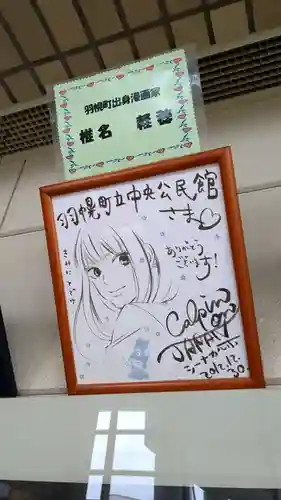 羽幌町出身漫画家
椎名 軽穂
羽幌町立中央公民館
さま
ありがとう
ございます!
きみにとどけ
Calpin
JAPAN
シーナカルホ
2012.12.
20.